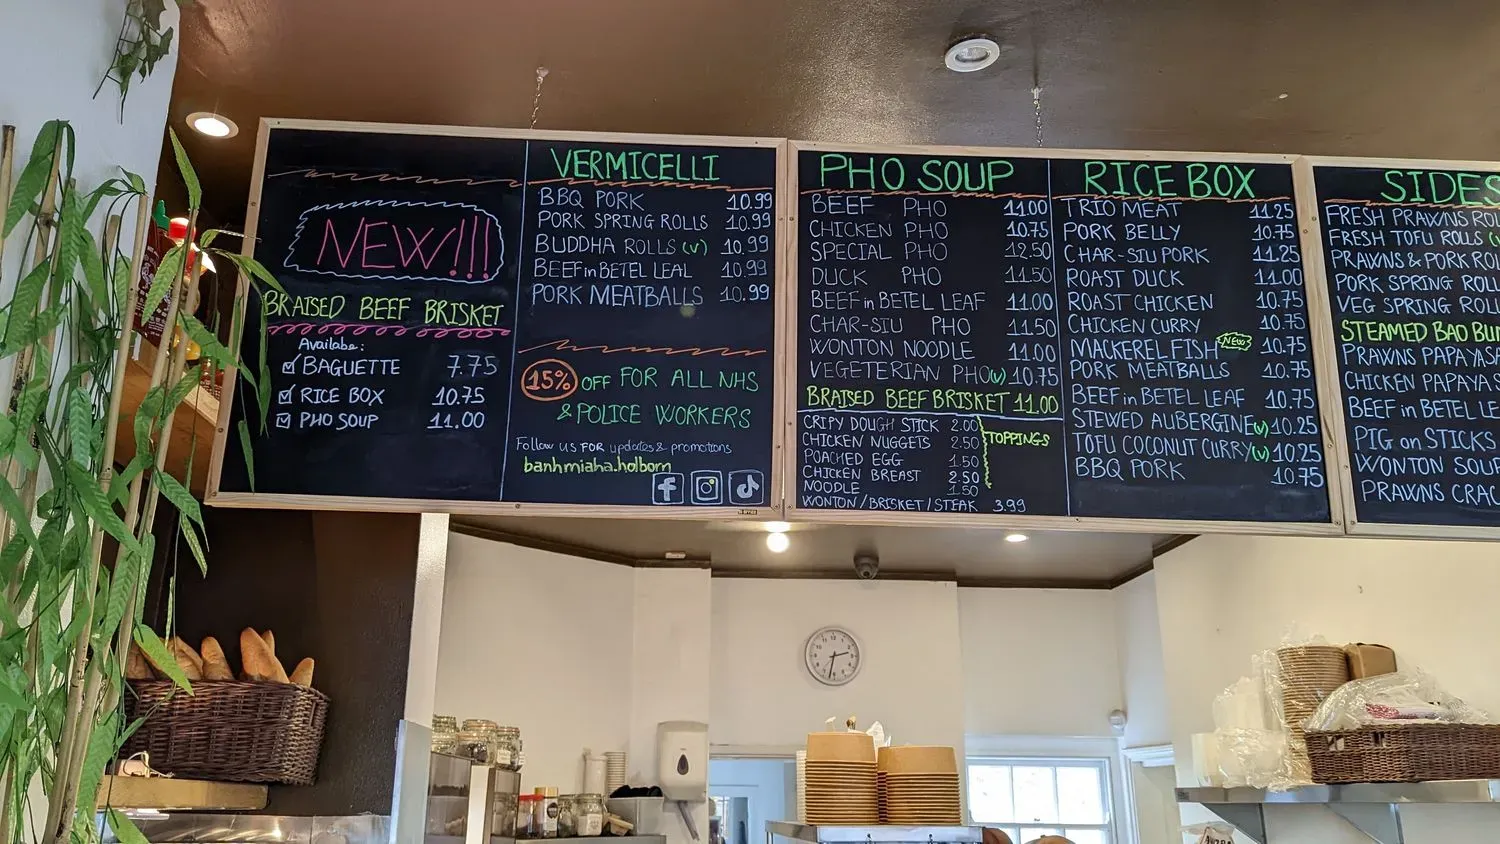 NEW!!!
BRAISED BEEF BRISKET
Availabe:
BAGUETTE 7.75
RICE BOX 10.75
PHO SOUP 11.00
VERMICELLI
BBQ PORK 10.99
PORK SPRING ROLLS 10.99
BUDDHA ROLLS (V) 10.99
BEEF in BETEL LEAL 10.99
PORK MEATBALLS 10.99
15% OFF FOR ALL NHS
& POLICE WORKERS
Follow us FOR updates & promotions
banhmiaha.holborn
PHO SOUP
BEEF PHO 11.00
CHICKEN PHO 10.75
SPECIAL PHO 12.50
DUCK PHO 11.50
BEEF in BETEL LEAF 11.00
CHAR-SIU PHO 11.50
WONTON NOODLE 11.00
VEGETERIAN PHO (V) 10.75
BRAISED BEEF BRISKET 11.00
CRIPY DOUGH STICK 2.00
CHICKEN NUGGETS 2.50
POACHED EGG 1.50
CHICKEN BREAST 2.50
NOODLE 1.50
WONTON / BRISKET / STEAK 3.99
TOPPINGS
RICE BOX
TRIO MEAT 11.25
PORK BELLY 10.75
CHAR-SIU PORK 11.25
ROAST DUCK 11.00
ROAST CHICKEN 10.75
CHICKEN CURRY 10.75
MACKEREL FISH NEW 10.75
PORK MEATBALLS 10.75
BEEF in BETEL LEAF 10.75
STEWED AUBERGINE (V) 10.25
TOFU COCONUT CURRY (V) 10.25
BBQ PORK 10.75
SIDES
FRESH PRAWNS ROL
FRESH TOFU ROLLS (V
PRAWNS & PORK ROL
PORK SPRING ROLL
VEG SPRING ROLL
STEAMED BAO BU
PRAWNS PAPAYA S
CHICKEN PAPAYA S
BEEF in BETEL LE
PIG on STICKS
WONTON SOUP
PRAWNS CRAC